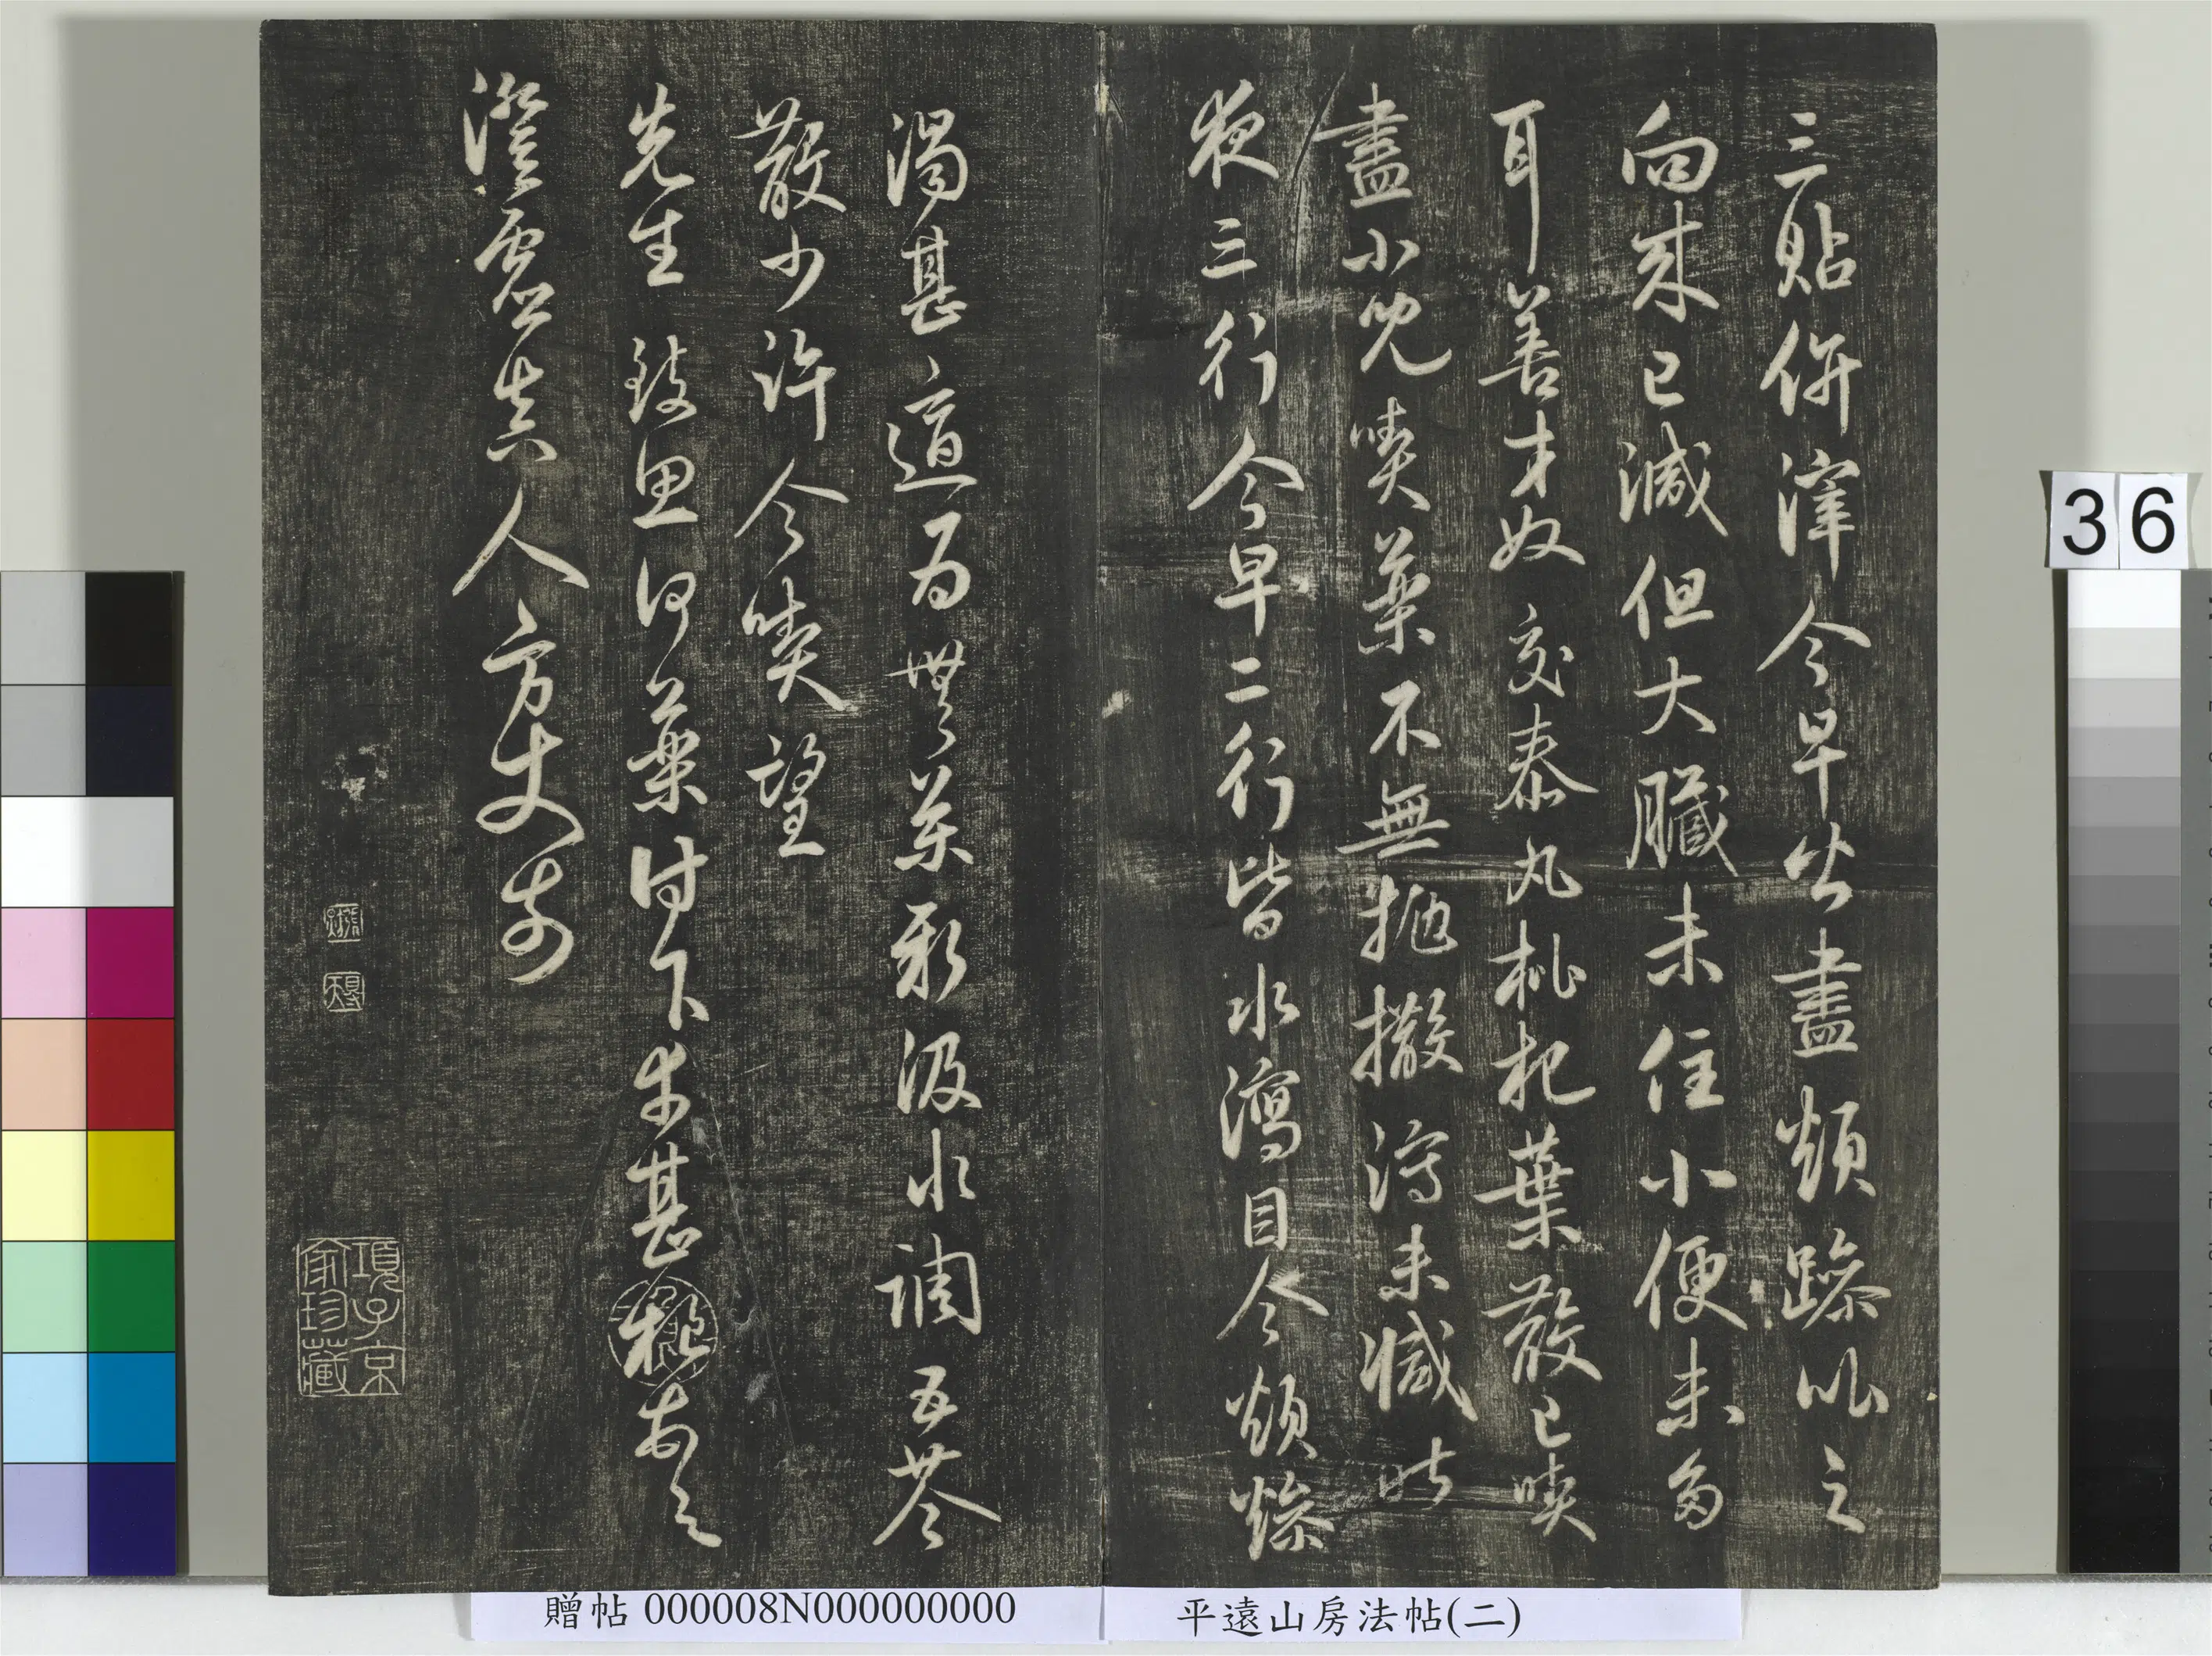 三貼併滓今早皆盡煩躁以之
向來已減但大臟未住小便未多
耳善才奴交泰丸枇杷葉散已喫
盡小兒喫藥不無拋撒瀉未減昨
夜三行今早二行皆水瀉目今煩燥
渴甚適為無藥新汲水調五苓
散少許令喫望
先生 致思何藥付下生甚
澄虛真人方丈前
項子京家珍藏
36
贈帖 000008N000000000
平遠山房法帖(二)